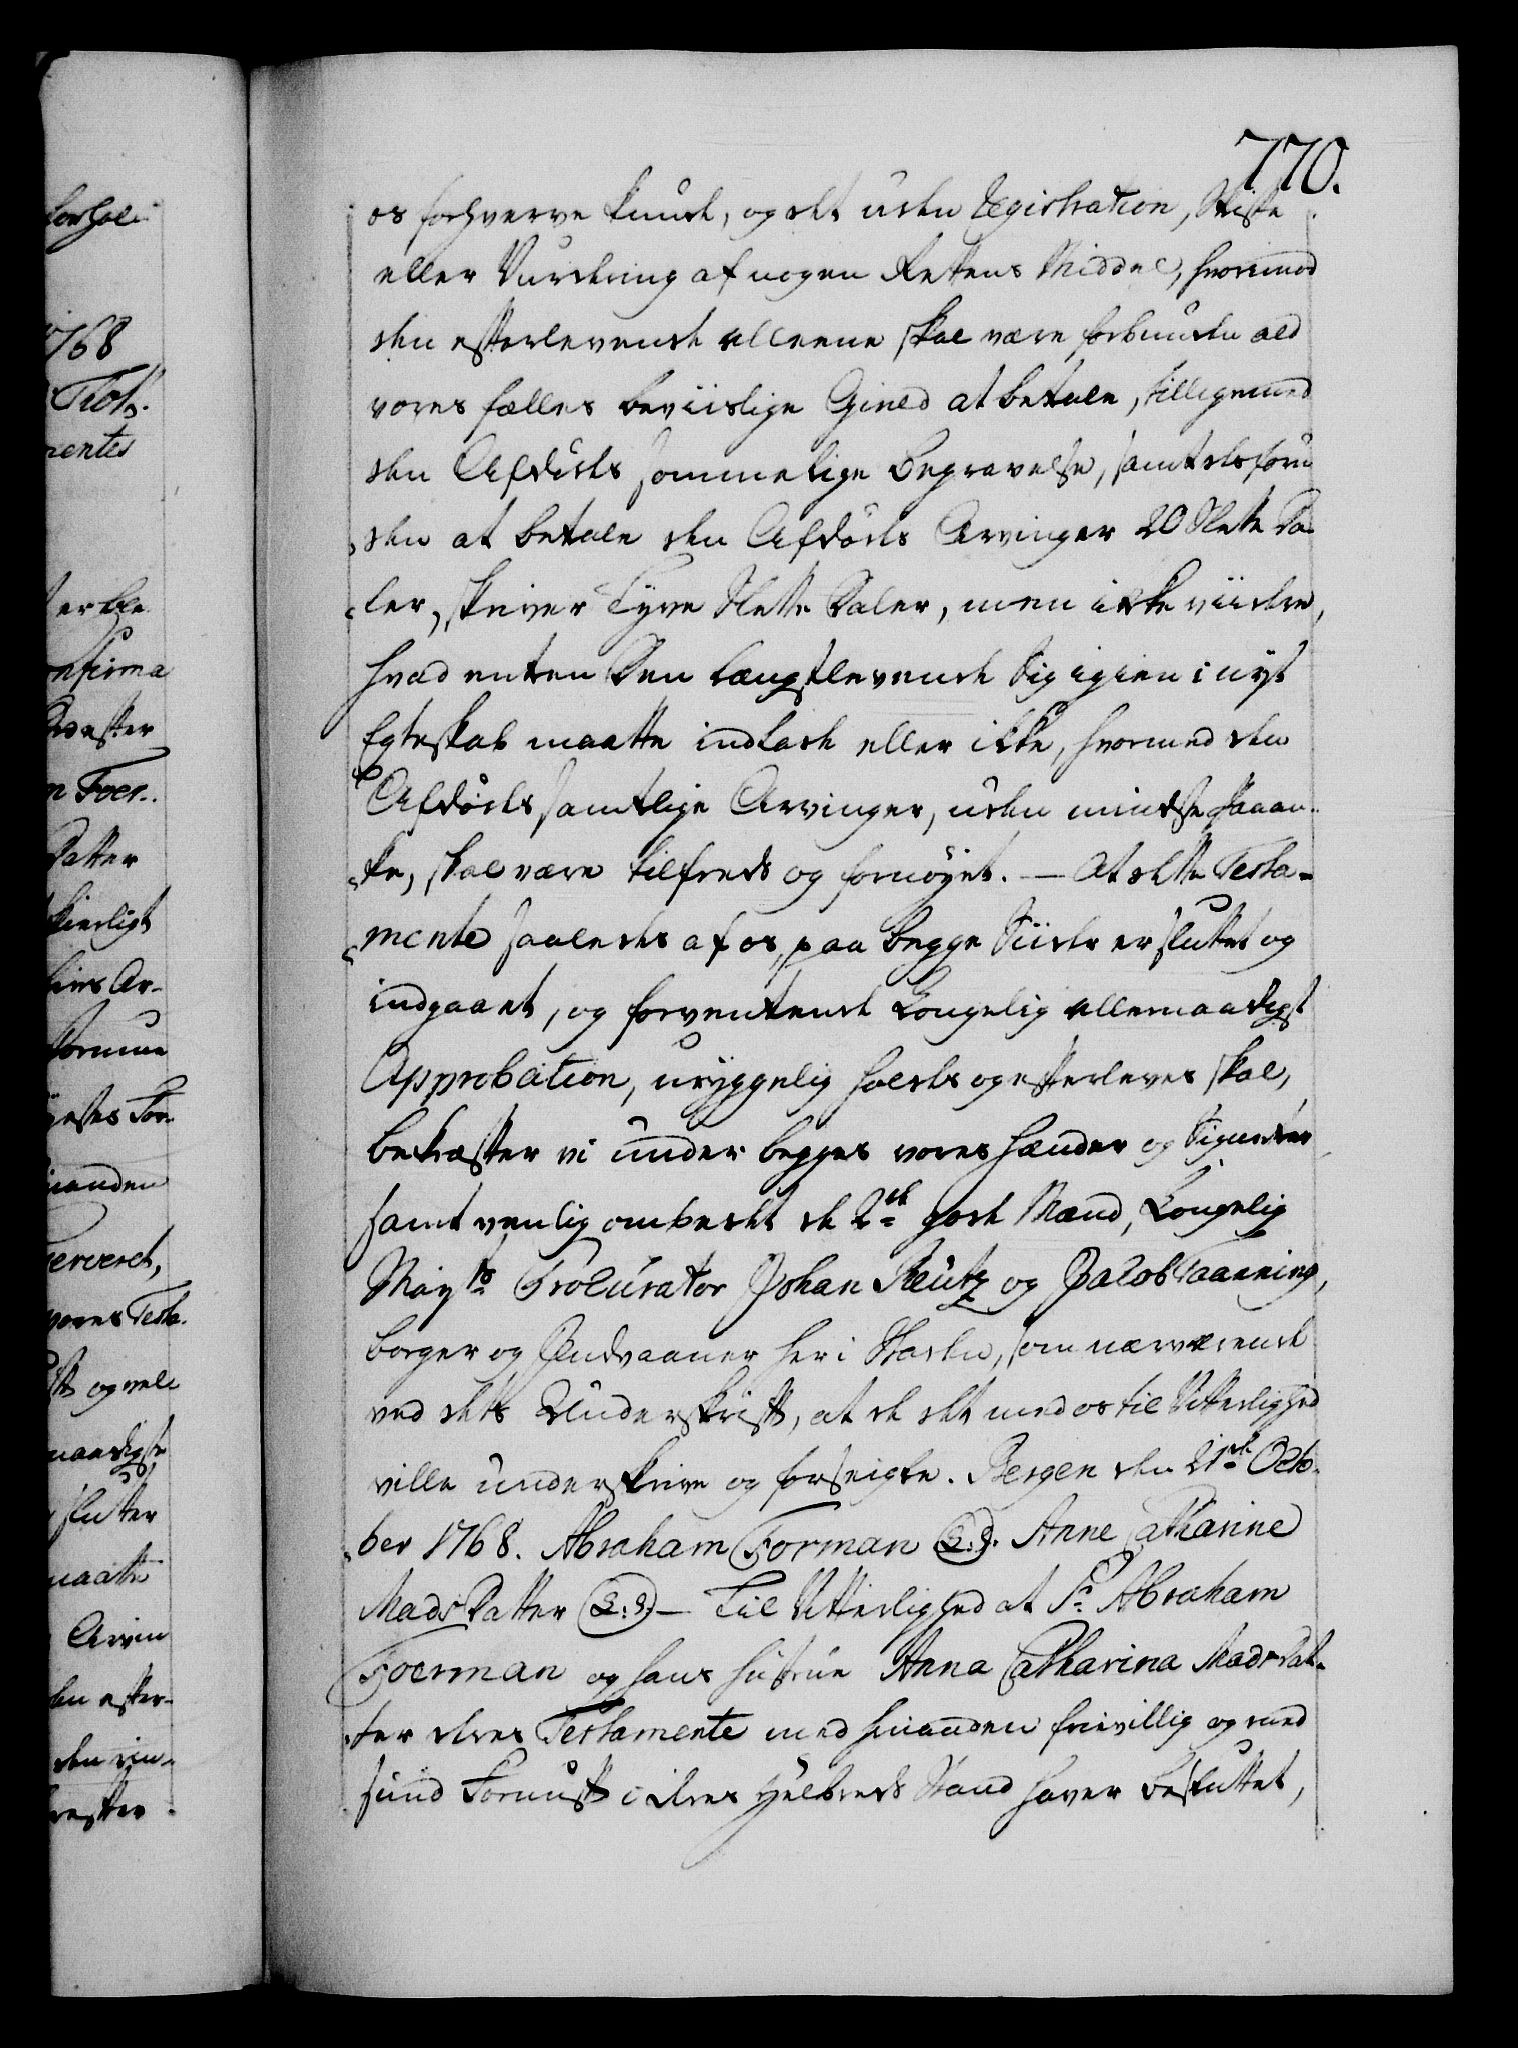 770.
os forhverve kunde, og det uden Registration, Skifte
eller Vurdering af nogen Rettens Middel, hvorimod
den efterlevende alleene skal være forbunden ald
vores fælles beviislige Gield at betale, tilligemed
den Afdødes sømmelige Begravelse, samt desforu-
den at betale den Afdødes Arvinger 20 Slette Da-
ler, skriver Tyve Slette Daler, men ikke viidere,
hvad enten Den længstlevende sig igien i nyt
Egteskab maatte indlade eller ikke, hvormed den
Afdødes samtlige Arvinger, uden mindste Paaan-
ke, skal være tilfreds og fornøyet. — At dette Testa-
mente saaledes af os, paa begge Siider er sluttet og
indgaaet, og forventende Kongelig allernaadigst
Approbation, uryggelig holdes og efterleves skal,
bekræfter vi under begges vores Hænder og Signeter
samt venlig ombedet de 2de gode Mænd, Kongelig
Mayts Procurator Johan Reutz og Jacob Taanning,
borger og Indvaaner her i Staden, som nærværende
ved dets Underskrift, at de det med os til Vitterlighed
ville underskrive og forseigle. Bergen den 21de Octo-
ber 1768. Abraham Forman (L:S). Anne Catharine
Mads Datter (L:S.) — Til Vitterlighed at Sr. Abraham
Foerman og hans Hustrue Anna Catharina Mads Dat-
ter deres Testamente med hinanden frivillig og med
sund Fornuft i deres Helbreds Stand haver besluttet,